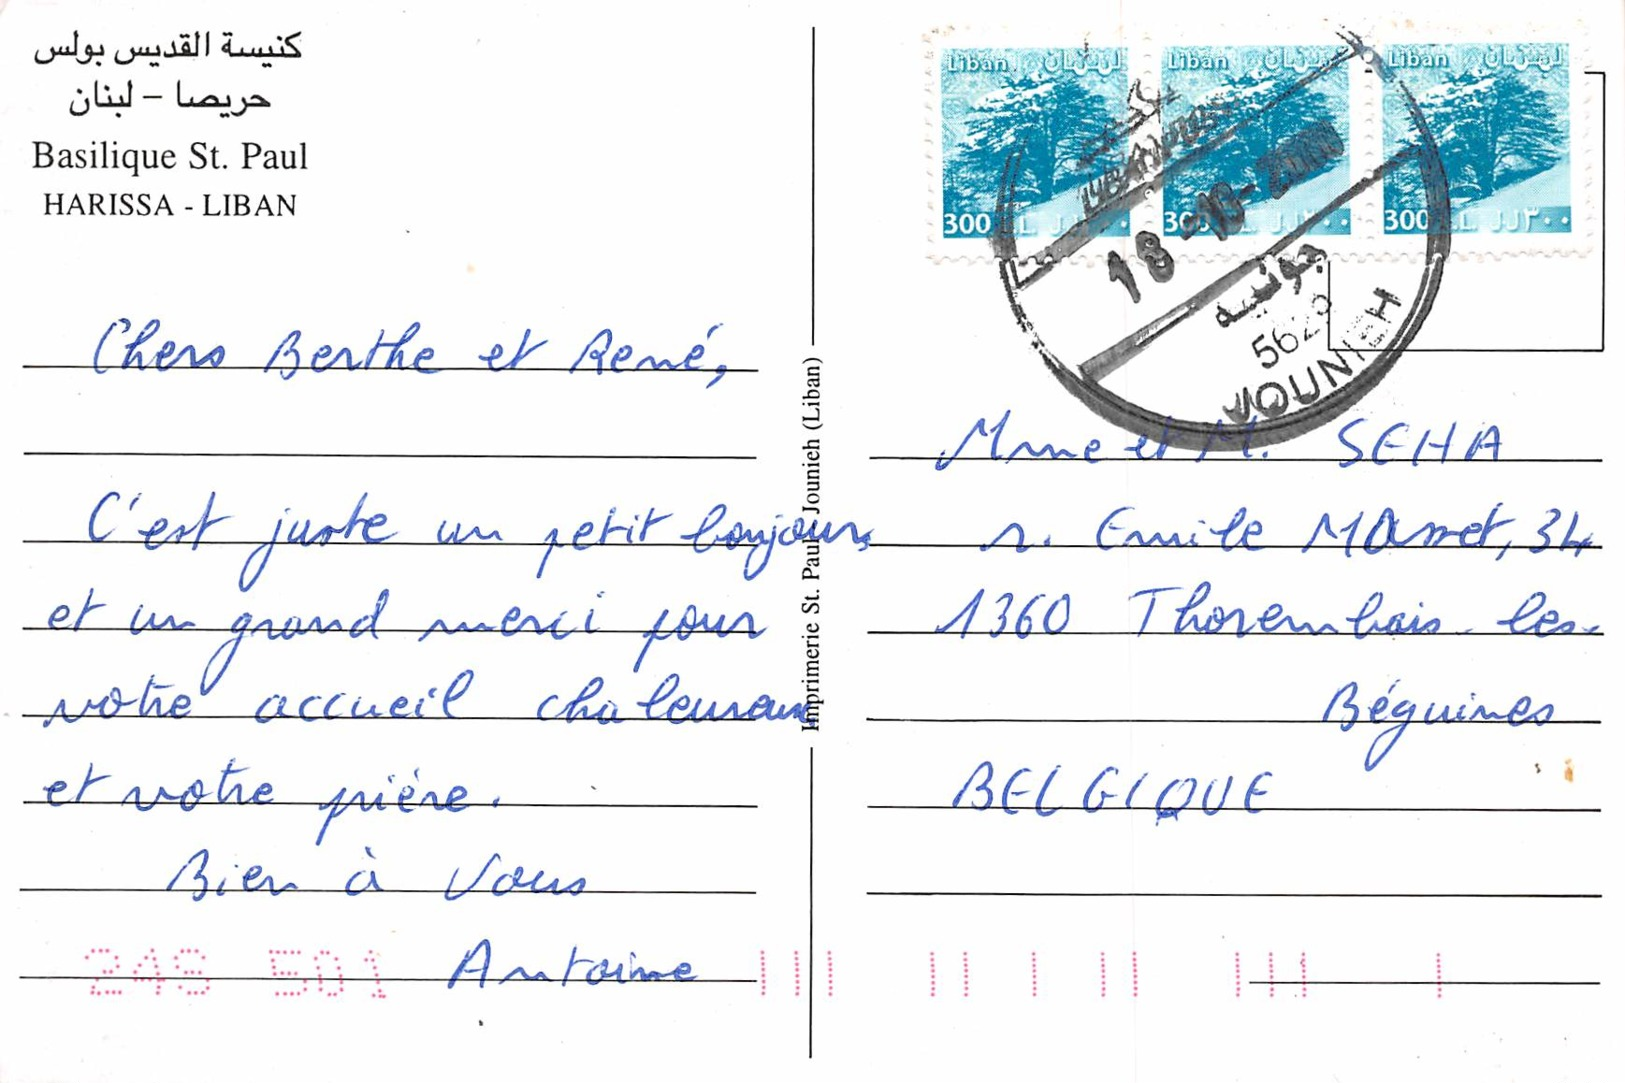 كنيسة القديس بولس
حريصا – لبنان
Basilique St. Paul
HARISSA - LIBAN
Chers Berthe et René,
C'est juste un petit bonjour,
et un grand merci pour
votre accueil chaleureux
et votre prière.
Bien à Vous
Antoine
248 501
Imprimerie St. Paul Jounieh (Liban)
Liban لبنان Liban لبنان Liban لبنان
300 L.L. ل.ل ٣٠٠ 300 L.L. ل.ل ٣٠٠ 300 L.L. ل.ل ٣٠٠
18-10-2000
جونيه
JOUNIEH
Mme et M. SEHA
r. Emile Masset, 34
1360 Thorembais-les-
Béguines
BELGIQUE